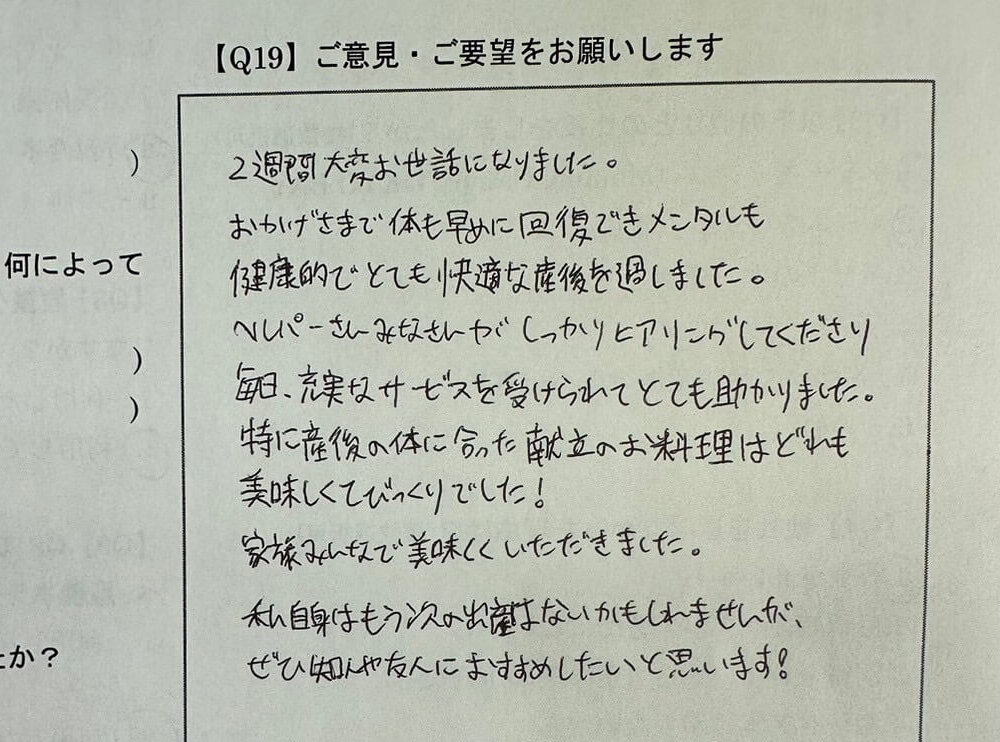 【Q19】ご意見・ご要望をお願いします
)
2週間大変お世話になりました。
おかげさまで体も早めに回復できメンタルも
何によって
健康的でとても快適な産後を過しました。
ヘルパーさんみなさんがしっかりヒアリングしてくださり
)
毎日、充実なサービスを受けられてとても助かりました。
)
特に産後の体に合った献立のお料理はどれも
美味しくてびっくりでした!
家族みんなで美味しくいただきました。
私自身はもう次の出産はないかもしれませんが、
たか?
ぜひ知人や友人におすすめしたいと思います!